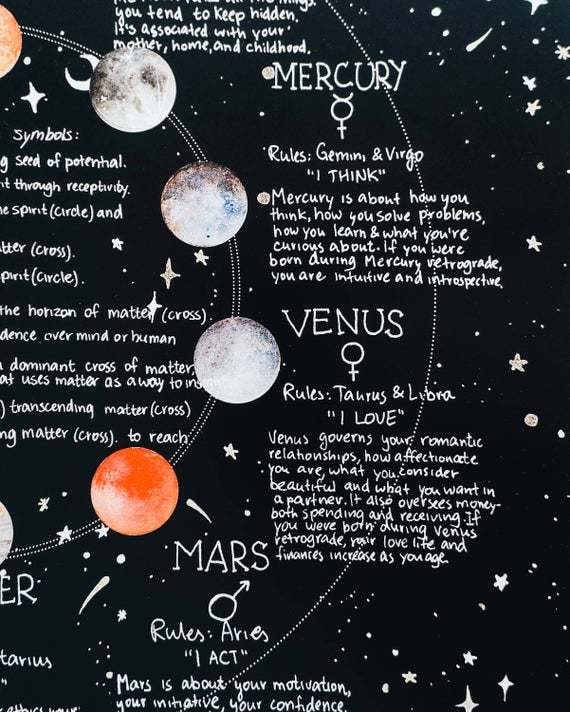 you tend to keep hidden.
It's associated with your
mother, home, and childhood.
MERCURY
Rules: Gemini & Virgo
"I THINK"
Mercury is about how you
think, how you solve problems,
how you learn & what you're
curious about. If you were
born during Mercury retrograde,
you are intuitive and introspective.
Symbols:
g seed of potential.
t through receptivity.
e spirit (circle) and
tter (cross).
pirit (circle).
the horizon of matter (cross).
dence over mind or human
a dominant cross of matter
at uses matter as a way to insight
) transcending matter (cross)
ng matter (cross). to reach
VENUS
Rules: Taurus & Libra
"I LOVE"
Venus governs your romantic
relationships, how affectionate
you are, what you consider
beautiful and what you want in
a partner. It also oversees money-
both spending and receiving. If
you were born during Venus
retrograde, your love life and
finances increase as you age.
MARS
Rules: Aries
"I ACT"
Mars is about your motivation,
your initiative, your confidence.
ER
tarius
"